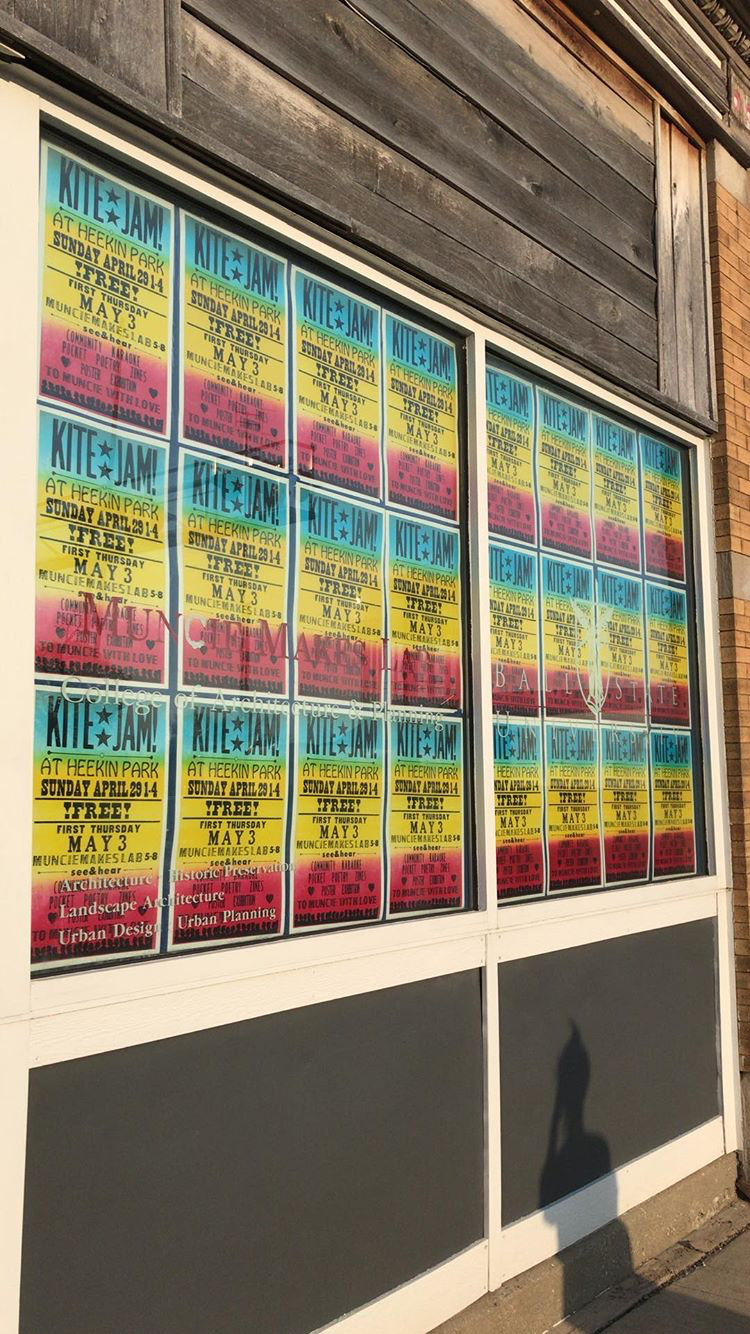 KITE JAM!
AT HEEKIN PARK
SUNDAY APRIL 29 1-4
!FREE!
FIRST THURSDAY
MAY 3
MUNCIEMAKESLAB 5-8
see&hear
COMMUNITY KARAOKE
POCKET POETRY ZINES
POSTER EXHIBITION
TO MUNCIE WITH LOVE
MUNCIE MAKES LAB
College of Architecture & Planning
BALL STATE
Architecture Historic Preservation
Landscape Architecture
Urban Design Urban Planning